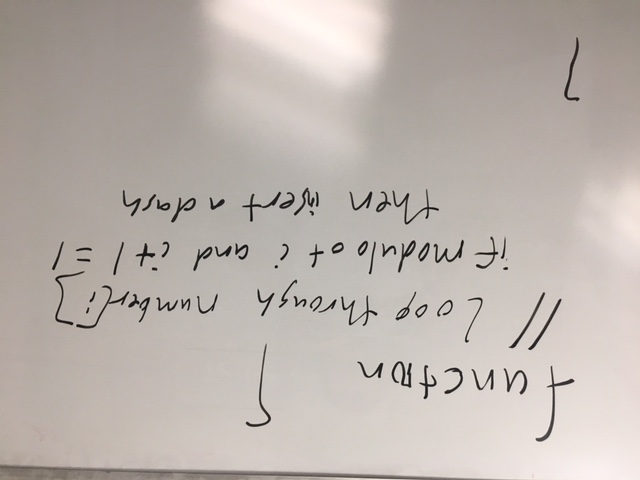 function {
// Loop through number[i]
if modulo of i and i+1 = 1
then insert a dash
}